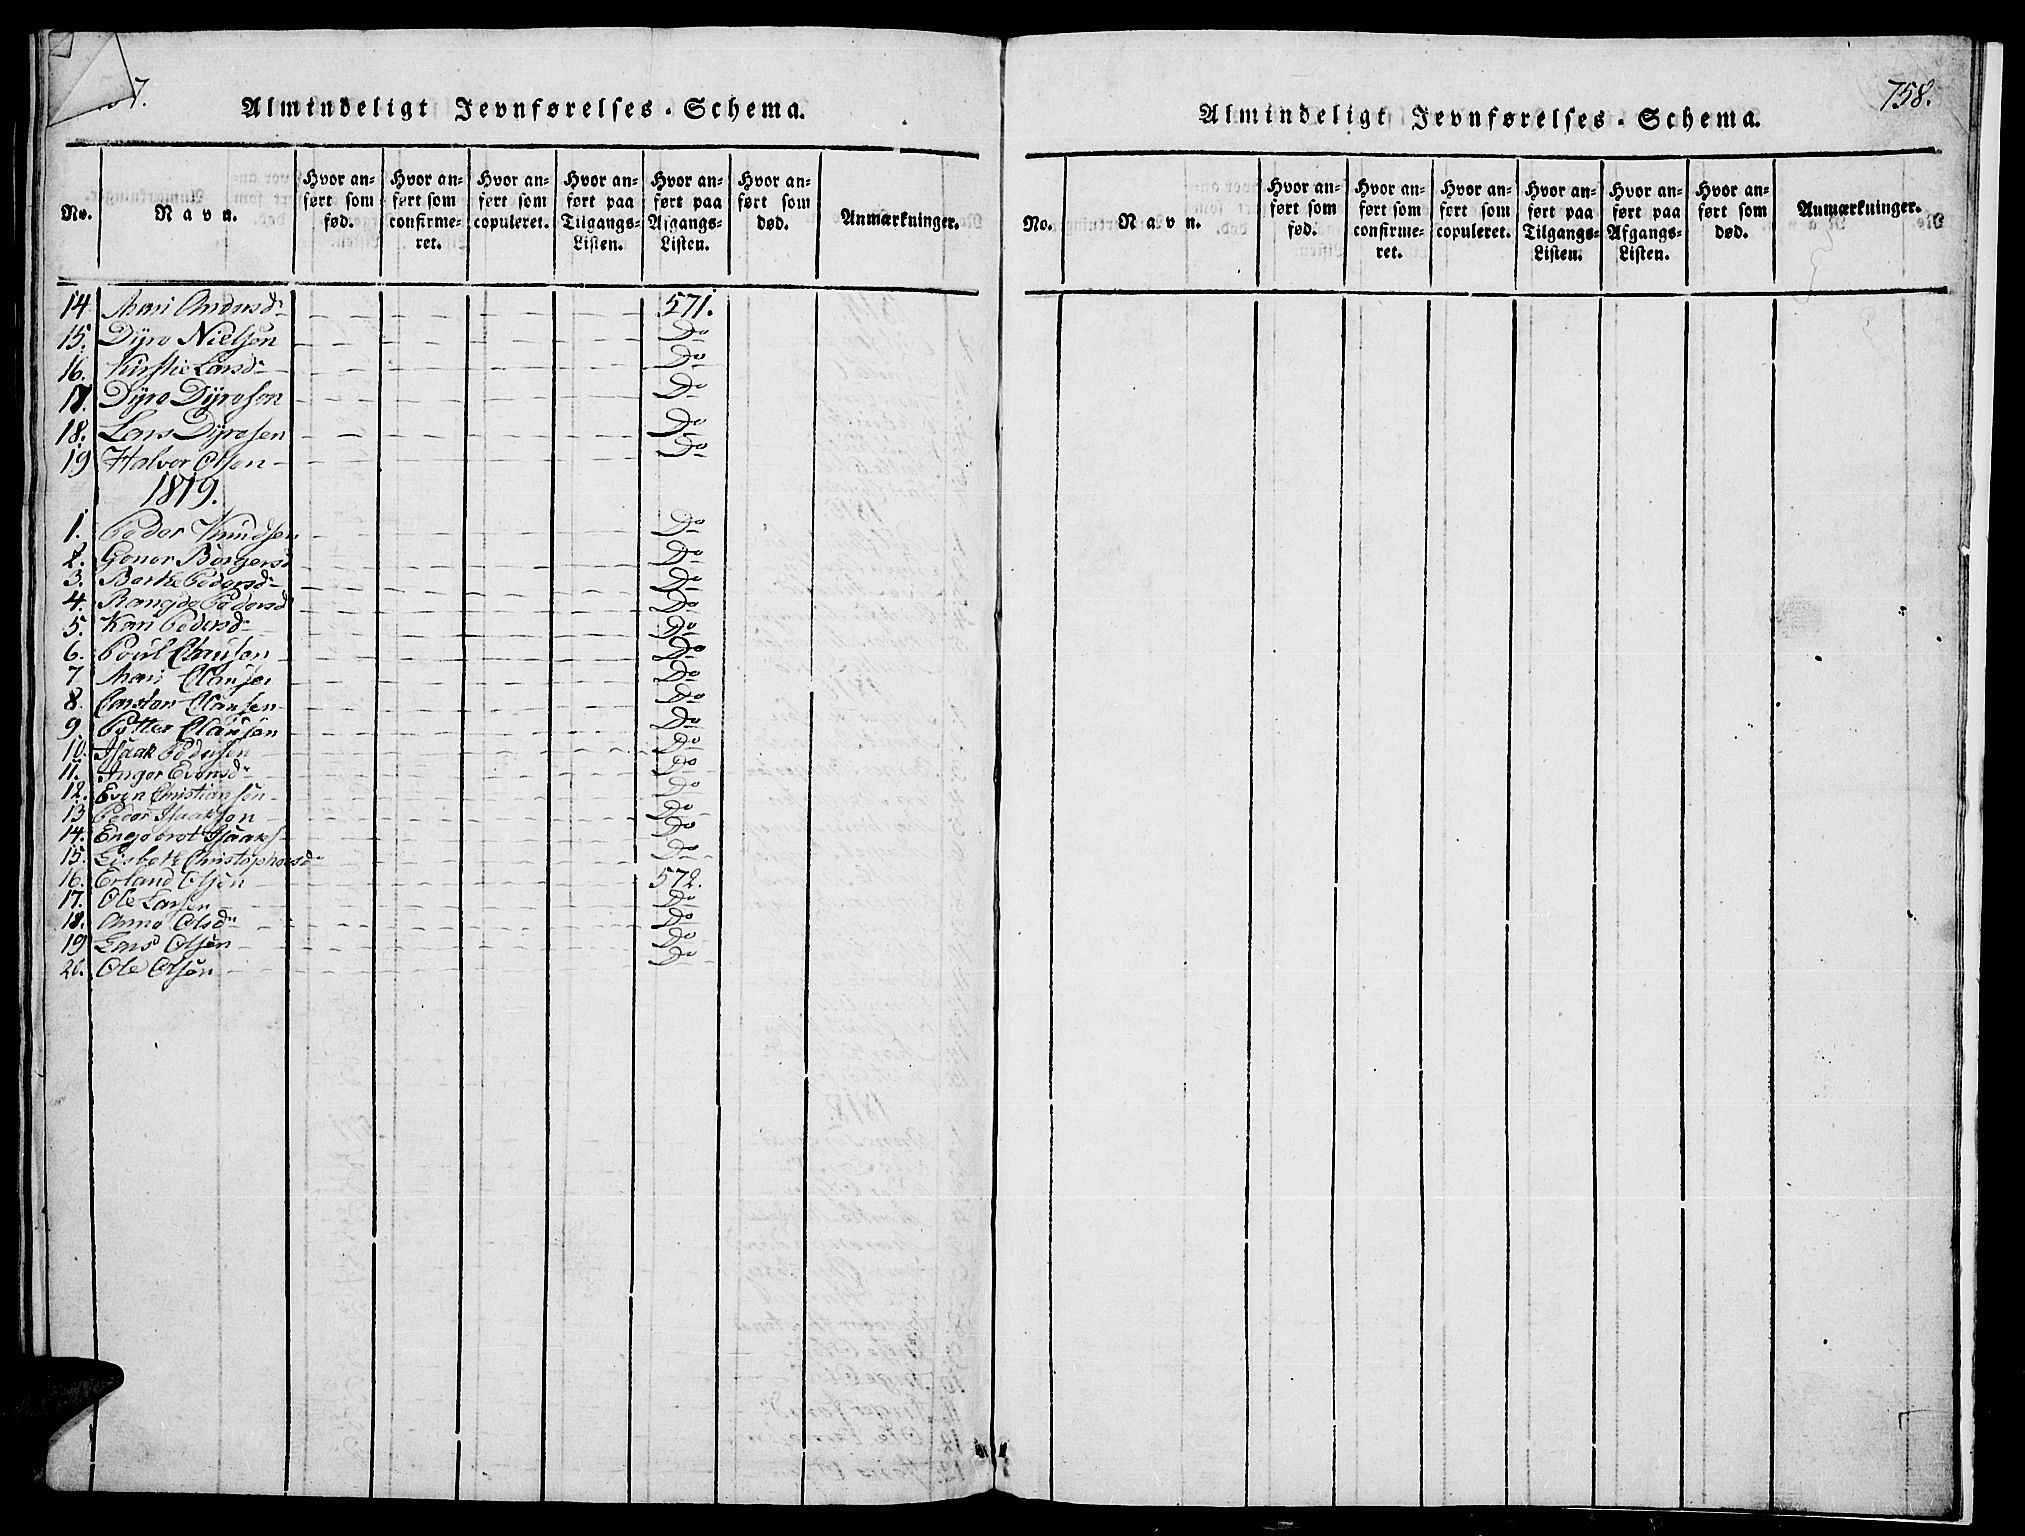 57.
Almindeligt Jevnførelses-Schema.
No. Navn. Hvor anført som fød. Hvor anført som confirmeret. Hvor anført som copuleret. Hvor anført paa Tilgangs-Listen. Hvor anført paa Afgangs-Listen. Hvor anført som død. Anmærkninger.
14. Mari Andersdr 571.
15. Dÿre Nielsen Do
16. Kirstie Larsdr Do
17. Dÿre Dÿresen Do
18. Lars Dÿresen Do
19 Halvor Olsen Do
1819.
1. Peder Knudsen Do
2. Gunor Börgersd Do
3. Berthe Pedersdr Do
4. Rangde Pedersd Do
5. Kari Pedersdr Do
6. Poul Clausen Do
7 Mari Clausen Do
8. Carsten Clausen Do
9. Petter Clausen Do
10. Isaak Pedersen Do
11. Inger Evensdr Do
12. Even Christiansen Do
13 Peder Isaaksen Do
14. Engebret Isaaks Do
15. Lisbeth Christophersdr Do
16. Erland Olsen 572.
17. Ole Larsen Do
18. Anne Olsdr Do
19 Lars Olsen Do
20. Ole Olsen Do
758.
Almindeligt Jevnførelses-Schema.
No. Navn. Hvor anført som fød. Hvor anført som confirmeret. Hvor anført som copuleret. Hvor anført paa Tilgangs-Listen. Hvor anført paa Afgangs-Listen. Hvor anført som død. Anmærkninger.